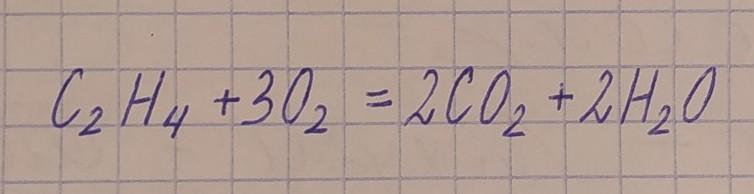 C₂H₄ + 3O₂ = 2CO₂ + 2H₂O